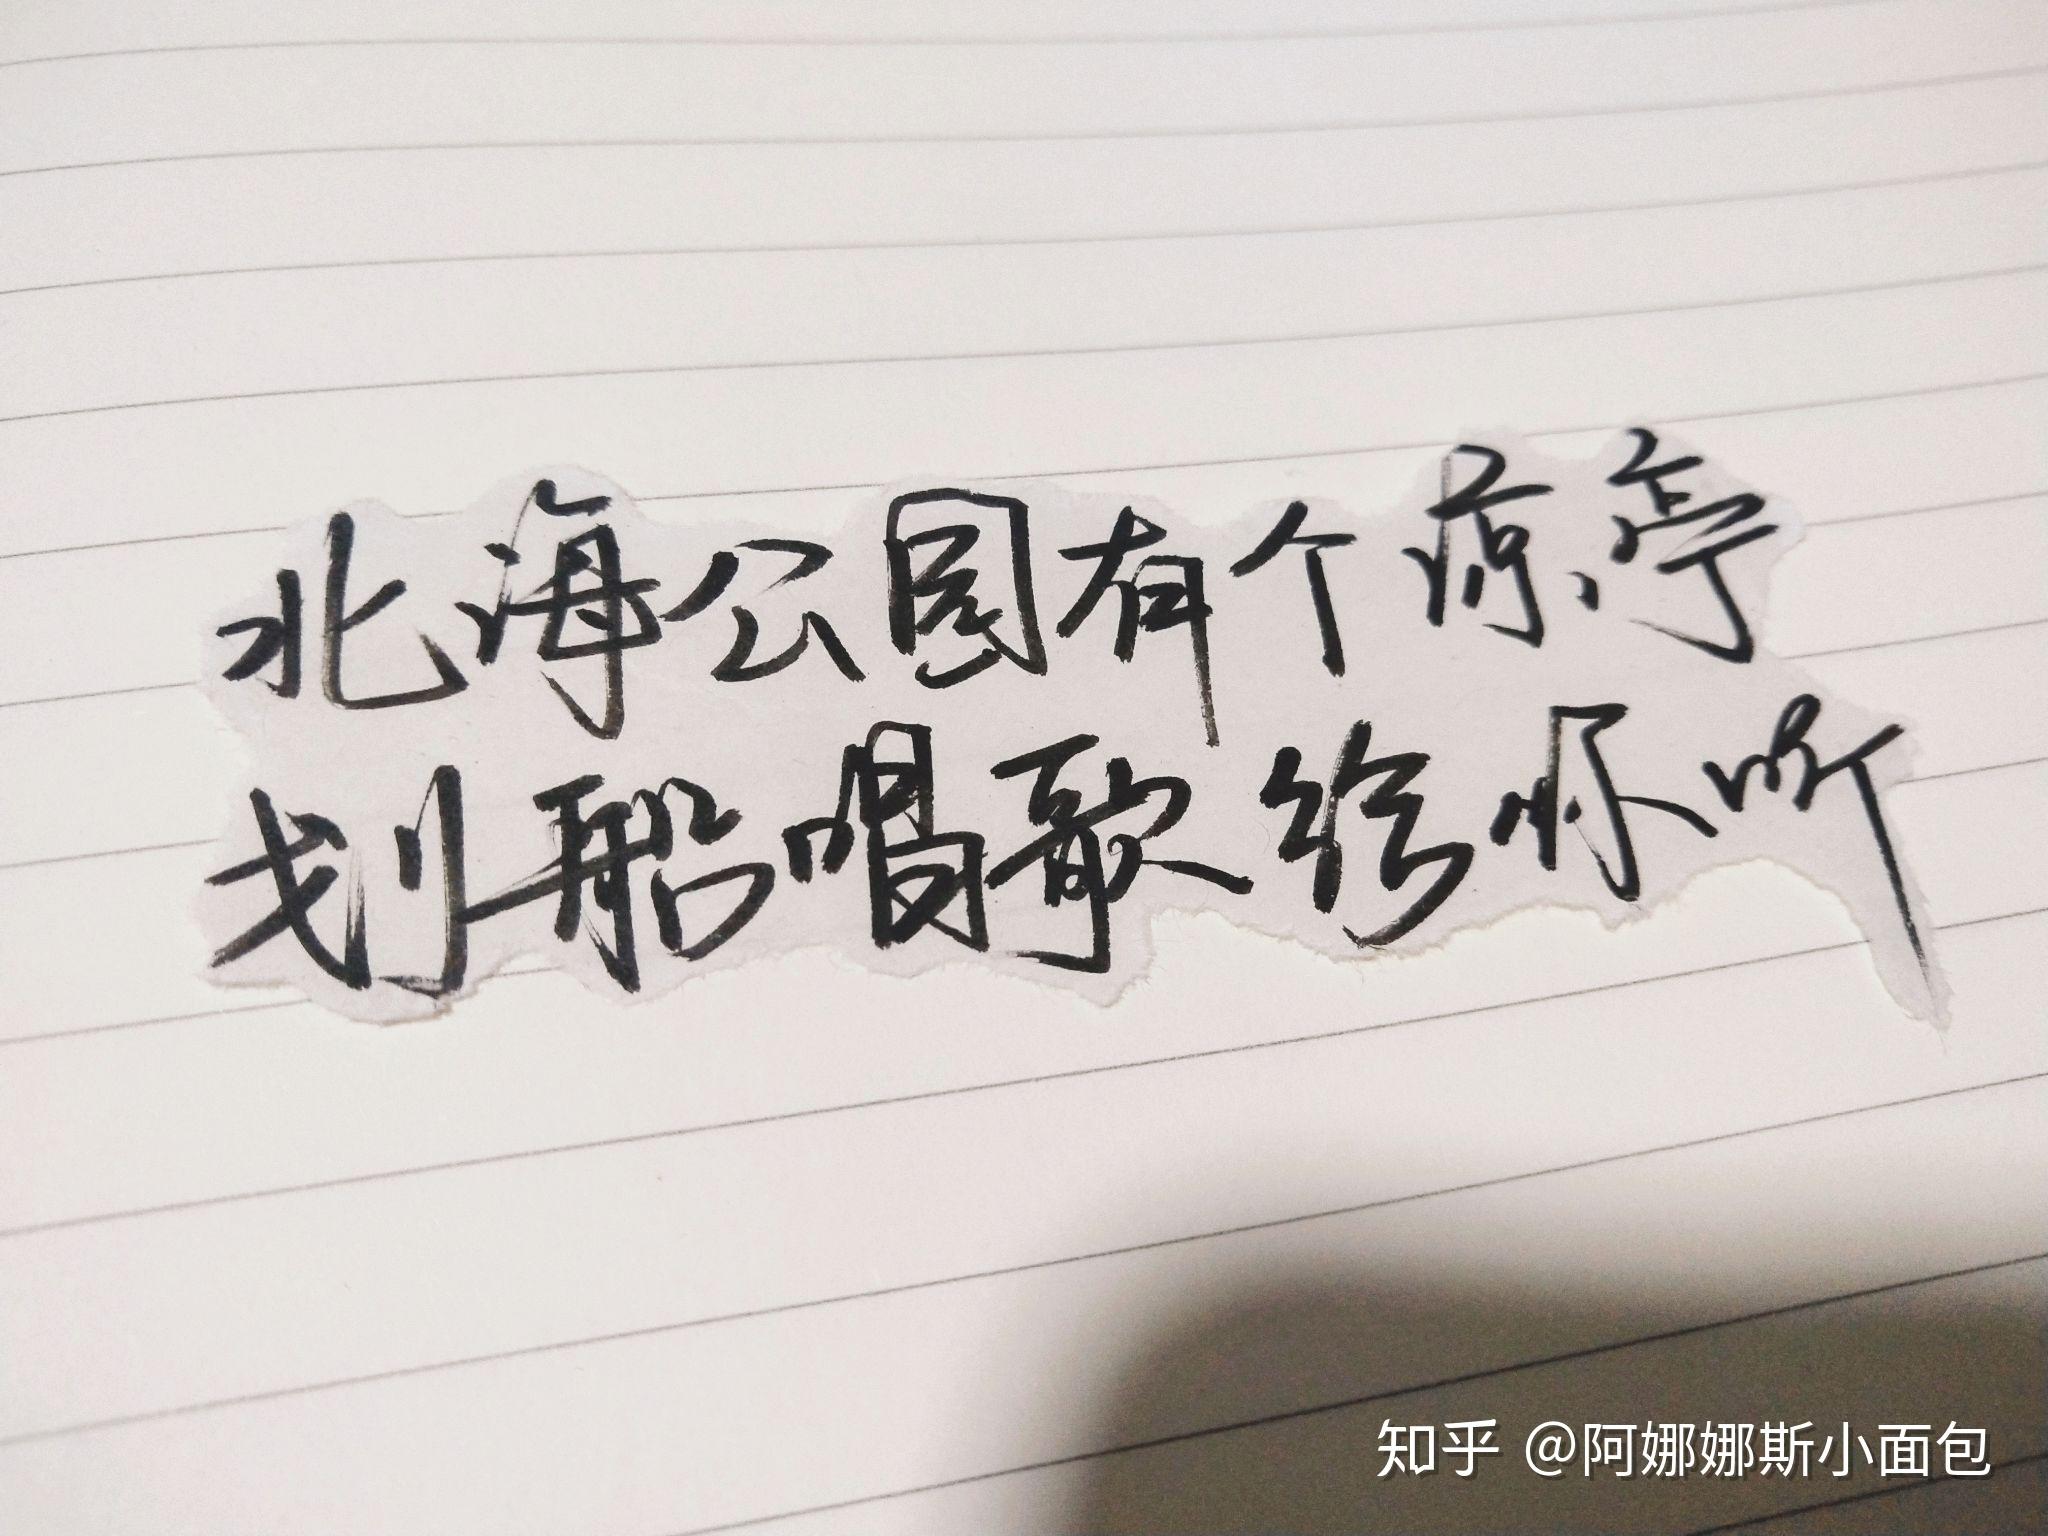 北海公园有个凉亭
划船唱歌给你听
知乎 @阿娜娜斯小面包